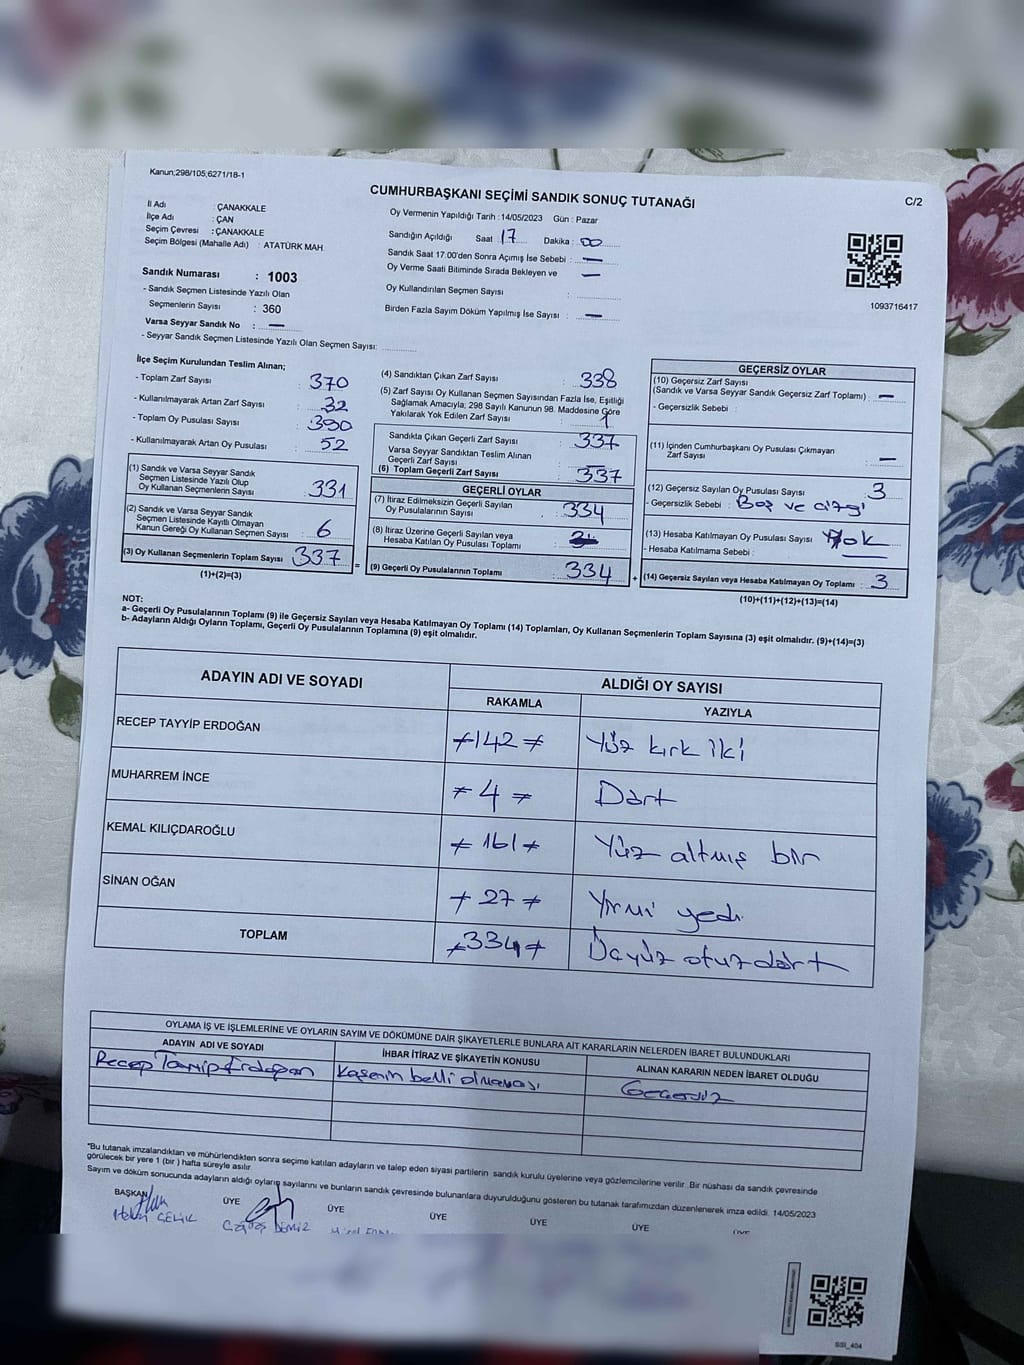 Kanun;298/105;6271/18-1
CUMHURBAŞKANI SEÇİMİ SANDIK SONUÇ TUTANAĞI
C/2
İl Adı : ÇANAKKALE
İlçe Adı : ÇAN
Seçim Çevresi : ÇANAKKALE
Seçim Bölgesi (Mahalle Adı) : ATATÜRK MAH.
Sandık Numarası : 1003
- Sandık Seçmen Listesinde Yazılı Olan
Seçmenlerin Sayısı : 360
Varsa Seyyar Sandık No : —
- Seyyar Sandık Seçmen Listesinde Yazılı Olan Seçmen Sayısı:
Oy Vermenin Yapıldığı Tarih : 14/05/2023 Gün : Pazar
Sandığın Açıldığı Saat : 17 Dakika : 00
Sandık Saat 17.00'den Sonra Açımış İse Sebebi : —
Oy Verme Saati Bitiminde Sırada Bekleyen ve —
Oy Kullandırılan Seçmen Sayısı :
Birden Fazla Sayım Döküm Yapılmış İse Sayısı : —
1093716417
İlçe Seçim Kurulundan Teslim Alınan;
- Toplam Zarf Sayısı : 370
- Kullanılmayarak Artan Zarf Sayısı : 32
- Toplam Oy Pusulası Sayısı : 390
- Kullanılmayarak Artan Oy Pusulası : 52
(1) Sandık ve Varsa Seyyar Sandık
Seçmen Listesinde Yazılı Olup
Oy Kullanan Seçmenlerin Sayısı : 331
(2) Sandık ve Varsa Seyyar Sandık
Seçmen Listesinde Kayıtlı Olmayan
Kanun Gereği Oy Kullanan Seçmen Sayısı : 6
(3) Oy Kullanan Seçmenlerin Toplam Sayısı : 337
(1)+(2)=(3)
(4) Sandıktan Çıkan Zarf Sayısı : 338
(5) Zarf Sayısı Oy Kullanan Seçmen Sayısından Fazla İse, Eşitliği
Sağlamak Amacıyla; 298 Sayılı Kanunun 98. Maddesine Göre
Yakılarak Yok Edilen Zarf Sayısı : 1
Sandıkta Çıkan Geçerli Zarf Sayısı : 337
Varsa Seyyar Sandıktan Teslim Alınan
Geçerli Zarf Sayısı :
(6) Toplam Geçerli Zarf Sayısı : 337
GEÇERLİ OYLAR
(7) İtiraz Edilmeksizin Geçerli Sayılan
Oy Pusulalarının Sayısı : 334
(8) İtiraz Üzerine Geçerli Sayılan veya
Hesaba Katılan Oy Pusulası Toplamı :
(9) Geçerli Oy Pusulalarının Toplamı : 334
GEÇERSİZ OYLAR
(10) Geçersiz Zarf Sayısı
(Sandık ve Varsa Seyyar Sandık Geçersiz Zarf Toplamı) : —
- Geçersizlik Sebebi :
(11) İçinden Cumhurbaşkanı Oy Pusulası Çıkmayan
Zarf Sayısı : —
(12) Geçersiz Sayılan Oy Pusulası Sayısı : 3
- Geçersizlik Sebebi : Boş ve çizgi
(13) Hesaba Katılmayan Oy Pusulası Sayısı : Yok
- Hesaba Katılmama Sebebi : —
(14) Geçersiz Sayılan veya Hesaba Katılmayan Oy Toplamı : 3
(10)+(11)+(12)+(13)=(14)
NOT:
a- Geçerli Oy Pusulalarının Toplamı (9) ile Geçersiz Sayılan veya Hesaba Katılmayan Oy Toplamı (14) Toplamları, Oy Kullanan Seçmenlerin Toplam Sayısına (3) eşit olmalıdır. (9)+(14)=(3)
b- Adayların Aldığı Oyların Toplamı, Geçerli Oy Pusulalarının Toplamına (9) eşit olmalıdır.
ADAYIN ADI VE SOYADI
ALDIĞI OY SAYISI
RAKAMLA
YAZIYLA
RECEP TAYYİP ERDOĞAN 142 Yüz kırk iki
MUHARREM İNCE 4 Dört
KEMAL KILIÇDAROĞLU 161 Yüz altmış bir
SİNAN OĞAN 27 Yirmi yedi
TOPLAM 334 Üçyüz otuz dört
OYLAMA İŞ VE İŞLEMLERİNE VE OYLARIN SAYIM VE DÖKÜMÜNE DAİR ŞİKAYETLERLE BUNLARA AİT KARARLARIN NELERDEN İBARET BULUNDUKLARI
ADAYIN ADI VE SOYADI
İHBAR İTİRAZ VE ŞİKAYETİN KONUSU
ALINAN KARARIN NEDEN İBARET OLDUĞU
Recep Tayyip Erdoğan
Kaşenin belli olmaması
Geçersiz
"Bu tutanak imzalandıktan ve mühürlendikten sonra seçime katılan adayların ve talep eden siyasi partilerin sandık kurulu üyelerine veya gözlemcilerine verilir. Bir nüshası da sandık çevresinde
görülecek bir yere 1 (bir ) hafta süreyle asılır.
Sayım ve döküm sonucunda adayların aldığı oyların sayılarını ve bunların sandık çevresinde bulunanlara duyurulduğunu gösteren bu tutanak tarafımızdan düzenlenerek imza edildi. 14/05/2023
BAŞKAN ÜYE ÜYE ÜYE ÜYE ÜYE ÜYE
ÇELİK
DENİZ
SSI_404